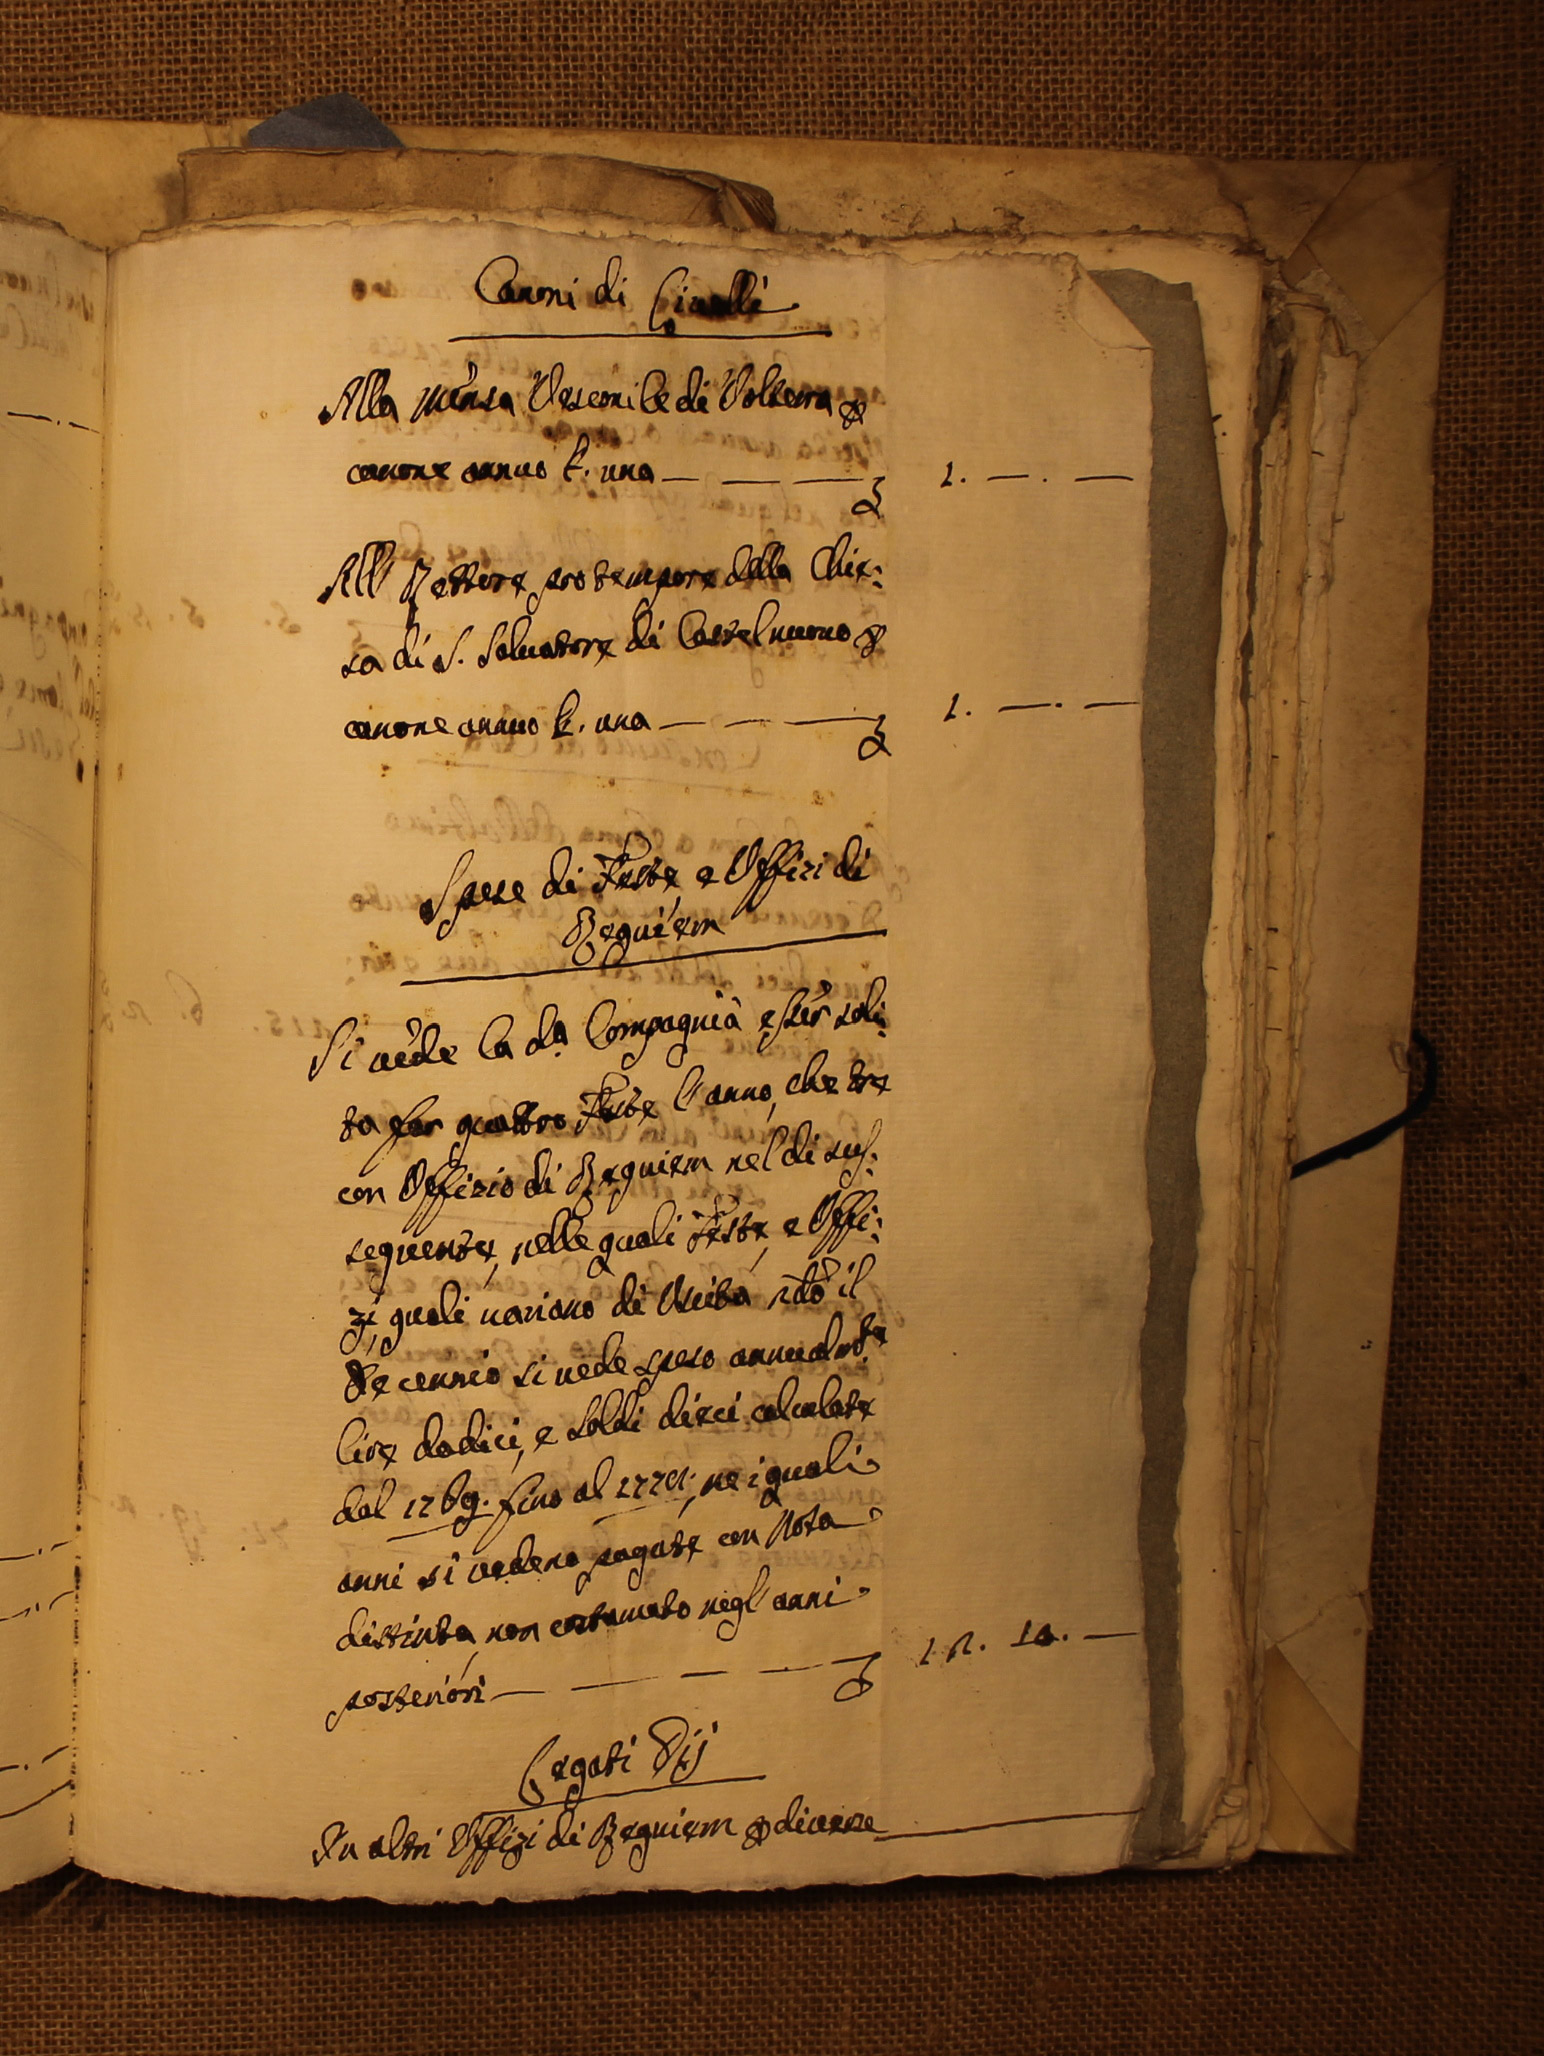 Canoni di Livelli
Alla Mensa Vescovile di Volterra p
canone annuo £. una — — — 1. — . —
All Rettore pro tempore della Chie:
sa di S. Salvatore di Castelnuovo p
canone annuo £. una — — — 1. — . —
Spese di Feste, e Offizi di
Requiem
Si vede la da. Compagnia esser soli:
ta far quattro Feste l'anno, che tre
con Offizio di Requiem nel di sus:
seguente, nelle quali Feste, e Offi:
zi, quali variano di Uscita, il
Decennio si vede speso annualmte
lire dodici, e soldi dieci calcolate
dal 1769. fino al ne i quali
anni si vedeno pagate con Nota
distinta, non costumato negl'anni
posteriori — — — — 12. 10. —
Legati Pij
In altri Offizi di Requiem p diverse